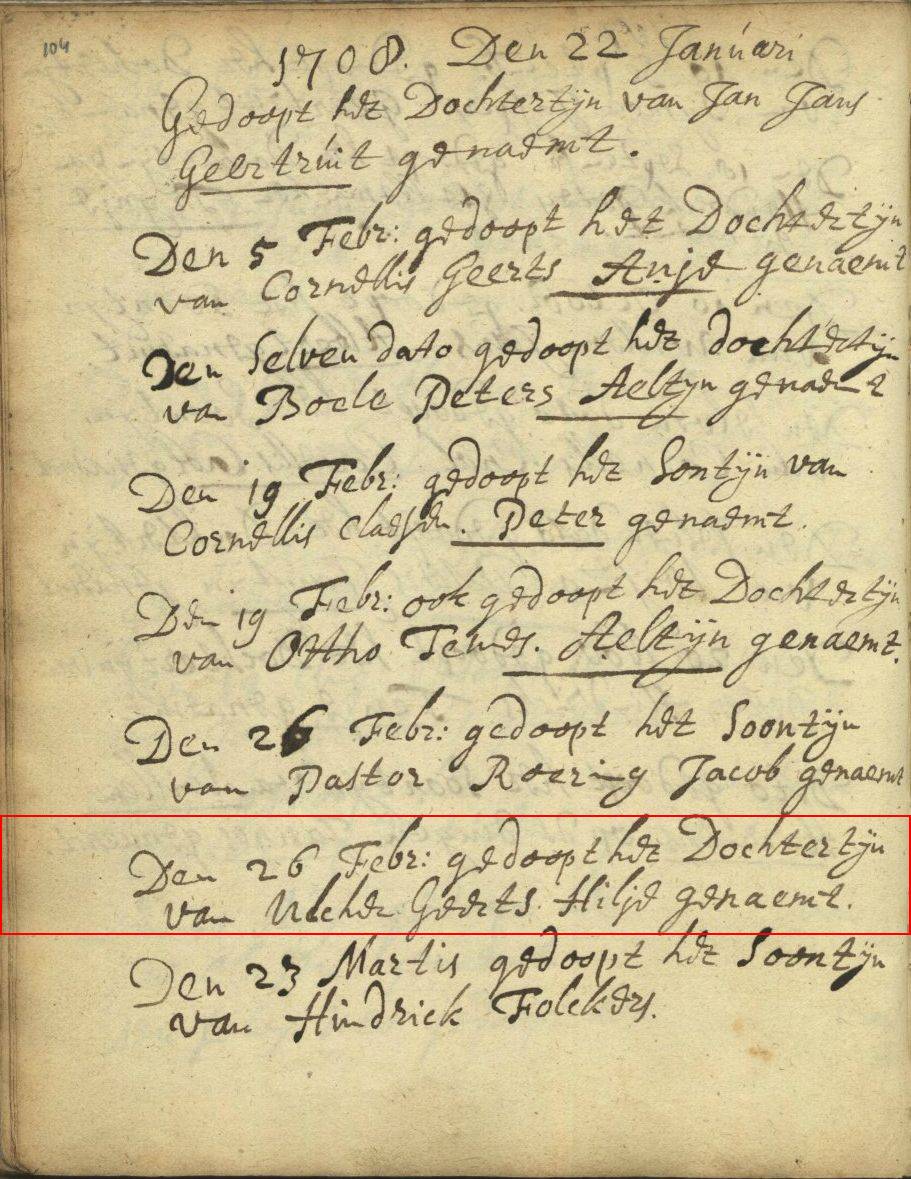 104
1708. Den 22 Januari
Gedoopt het Dochtertijn van Jan Jans
Geertruit genaemt.
Den 5 Febr: gedoopt het Dochtertijn
van Cornellis Geerts Anje genaemt
Den Selven dato gedoopt het dochtertijn
van Boele Peters Aeltyn genaemt
Den 19 Febr: gedoopt het Sontijn van
Cornellis Claesen. Peter genaemt.
Den 19 Febr: ook gedoopt het Dochtertijn
van Ottho Tewes. Aeltijn genaemt.
Den 26 Febr: gedoopt het Soontijn
van Pastor Roering Jacob genaemt
Den 26 Febr: gedoopt het Dochtertijn
van Geerts. Hilje genaemt.
Den 23 Martis gedoopt het Soontijn
van Hindrick Folckers.